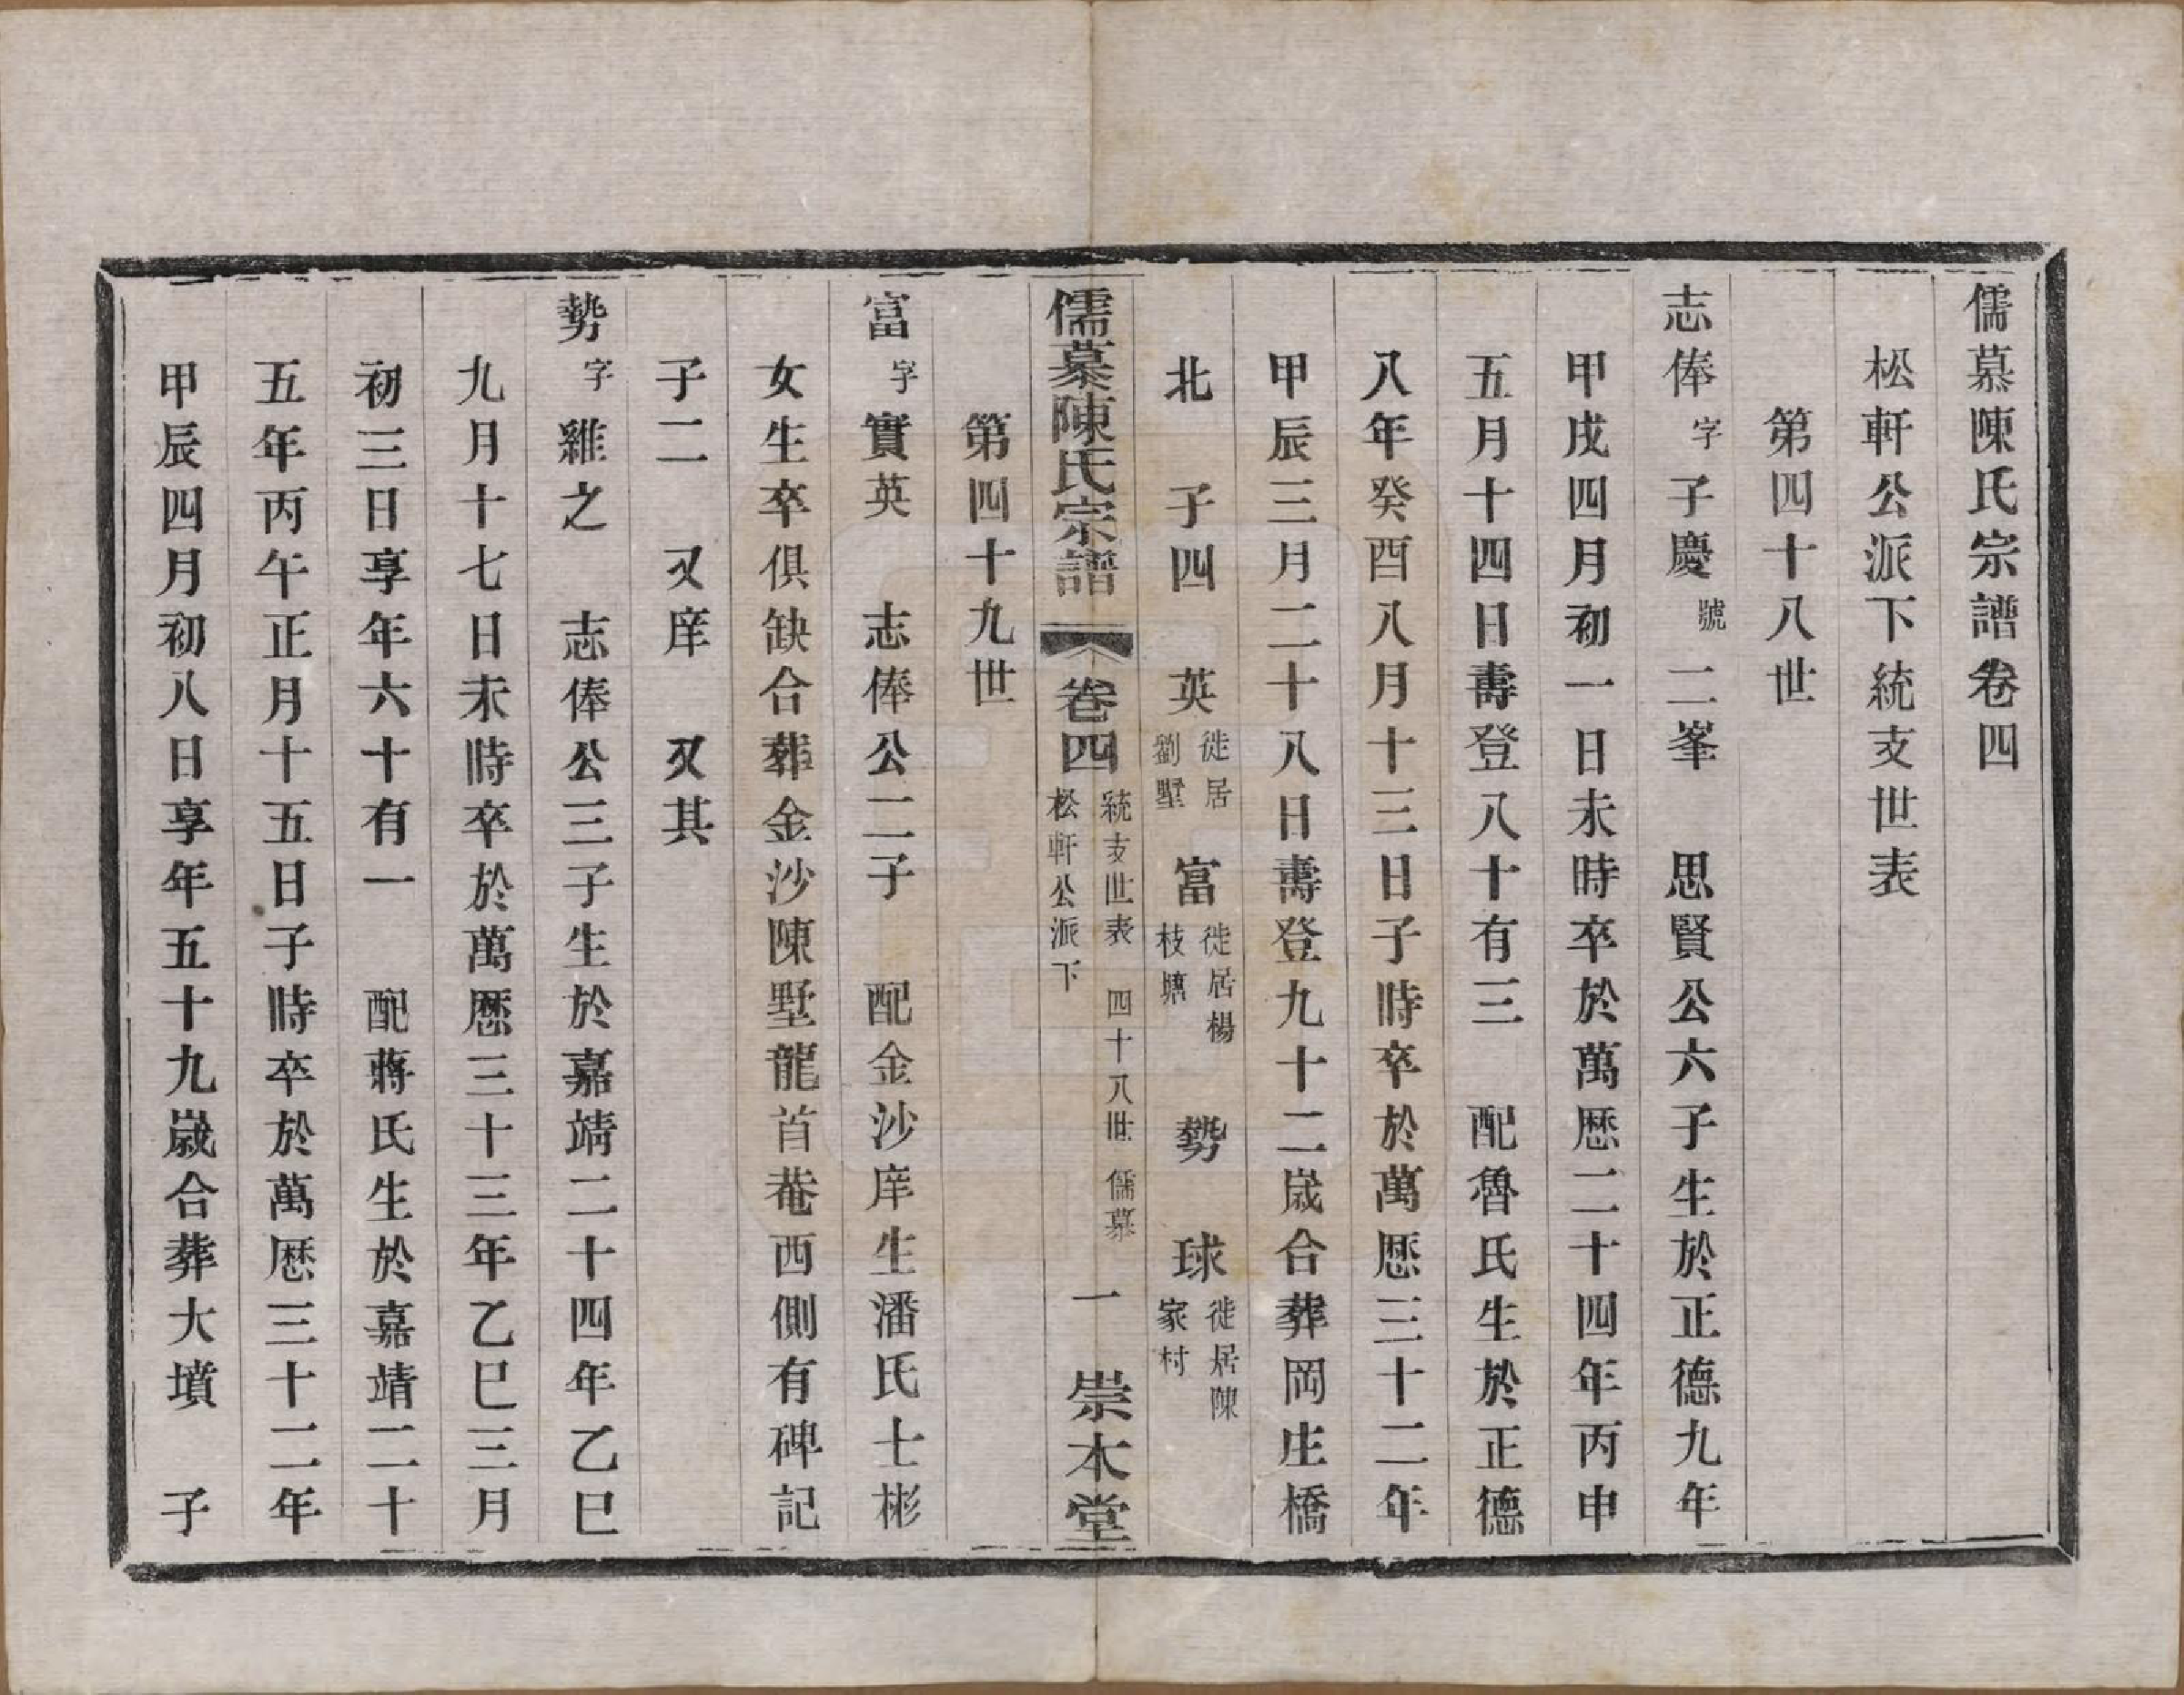 儒慕陳氏宗譜卷四
松軒公派下統支世表
第四十八世
志俸字子慶號二峯　思賢公六子生於正德九年
甲戌四月初一日未時卒於萬厯二十四年丙申
五月十四日壽登八十有三　配魯氏生於正德
八年癸酉八月十三日子時卒於萬厯三十二年
甲辰三月二十八日壽登九十二歲合葬岡庄橋
北　子四　英徙居劉墅　富徙居楊枝塘　勢　球徙居陳家村
儒慕陳氏宗譜　卷四　統支世表　四十八世　儒慕　松軒公派下　一　崇本堂
第四十九世
富字實英　志俸公二子　配金沙庠生潘氏士彬
女生卒俱缺合葬金沙陳墅龍首菴西側有碑記
子二　又庠　又其
勢字維之　志俸公三子生於嘉靖二十四年乙巳
九月十七日未時卒於萬厯三十三年乙巳三月
初三日享年六十有一　配蔣氏生於嘉靖二十
五年丙午正月十五日子時卒於萬厯三十二年
甲辰四月初八日享年五十九歲合葬大墳　子